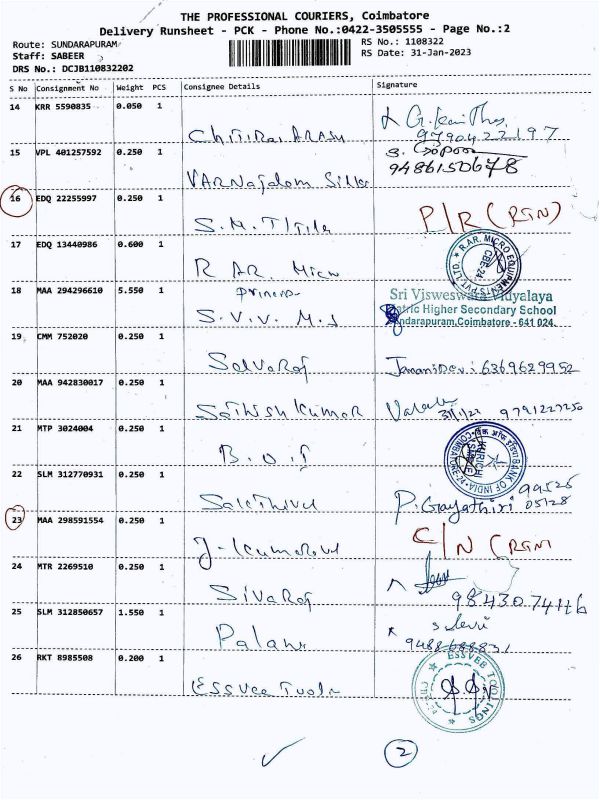 THE PROFESSIONAL COURIERS, Coimbatore
Delivery Runsheet - PCK - Phone No.:0422-3505555 - Page No.:2
Route: SUNDARAPURAM
RS No.: 1108322
Staff: SABEER
RS Date: 31-Jan-2023
DRS No.: DCJB110832202
S No Consignment No Weight PCS Consignee Details Signature
14 KRR 5590835 0.050 1
9790422197
15 VPL 401257592 0.250 1
9486150678
16 EDQ 22255997 0.250 1
S.M. P/R (RTN)
17 EDQ 13440986 0.600 1
R AR. Micro R.AR. MICRO EQUIPMENTS PVT. LTD. CBE-24
18 MAA 294296610 5.550 1
S.V.V. M.S
Sri Visweswara Vidyalaya
Matric Higher Secondary School
Sundarapuram, Coimbatore - 641 024.
19 CMM 752020 0.250 1
Selvaraj Janani Devi: 6369629952
20 MAA 942830017 0.250 1
Sathish Kumar 9791227250
21 MTP 3024004 0.250 1
B.O.I BANK OF INDIA KURICHI COIMBATORE
22 SLM 312770931 0.250 1
Sakthivel P. Gayathiri 99526 05128
23 MAA 298591554 0.250 1
J-Kumaravel C/N (RTN
24 MTR 2269510 0.250 1
Sivaraj
25 SLM 312850657 1.550 1
Palani 9488688831
26 RKT 8985508 0.200 1
Essvee Tools ESSVEE TOOLINGS
2